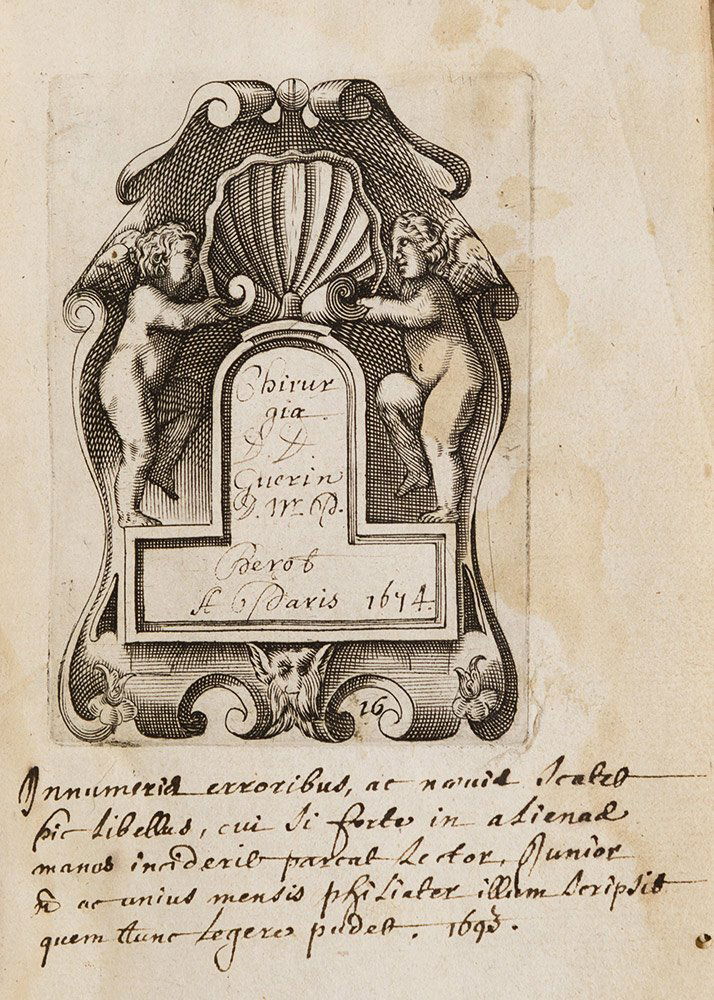 Chirur
gia
D. D.
Guerin
D. M. P.
Perot
A Paris 1674.
16
Innumeris erroribus, ac nævis scatet
hic libellus, cui si forte in alienas
manus inciderit parcat Lector. Junior
n̄ ac unius mensis philiater illum scripsit
quem nunc legere pudet. 1693.